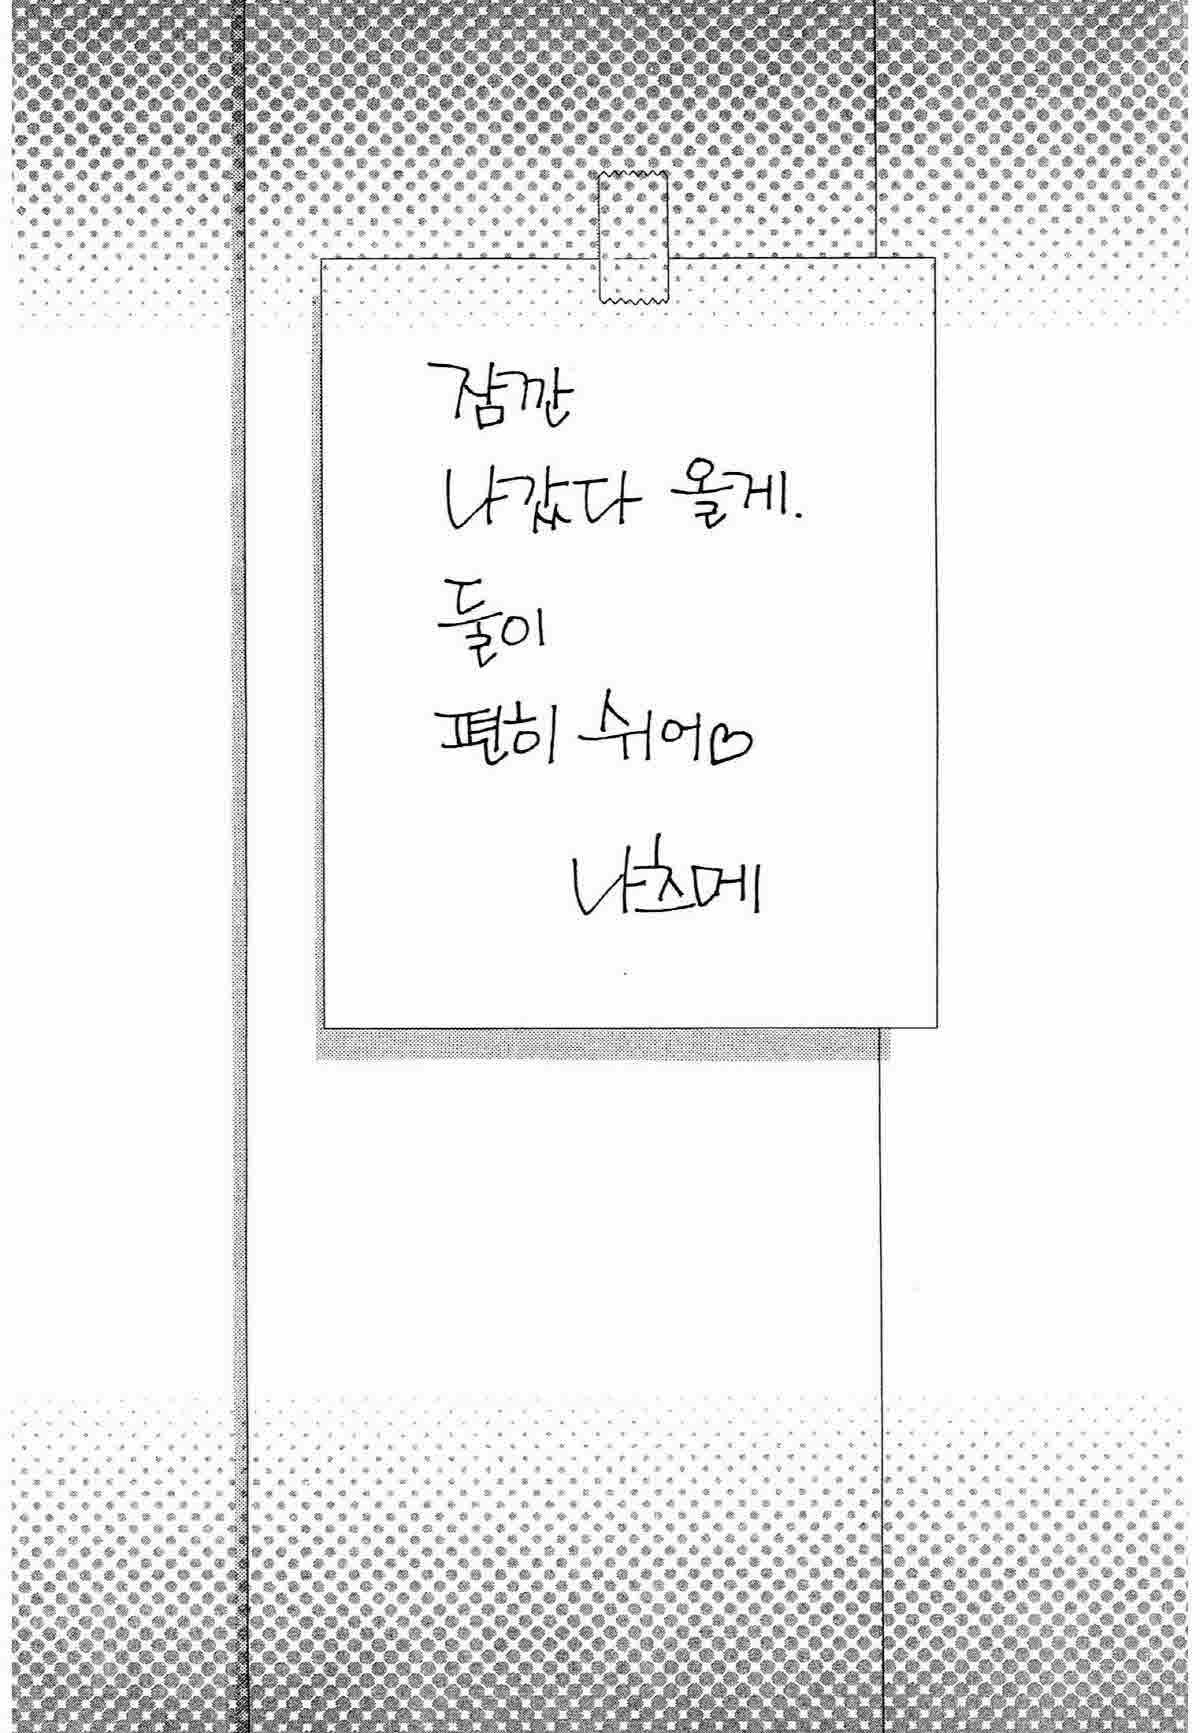 잠깐
나갔다 올게.
둘이
편히 쉬어♡
나츠메